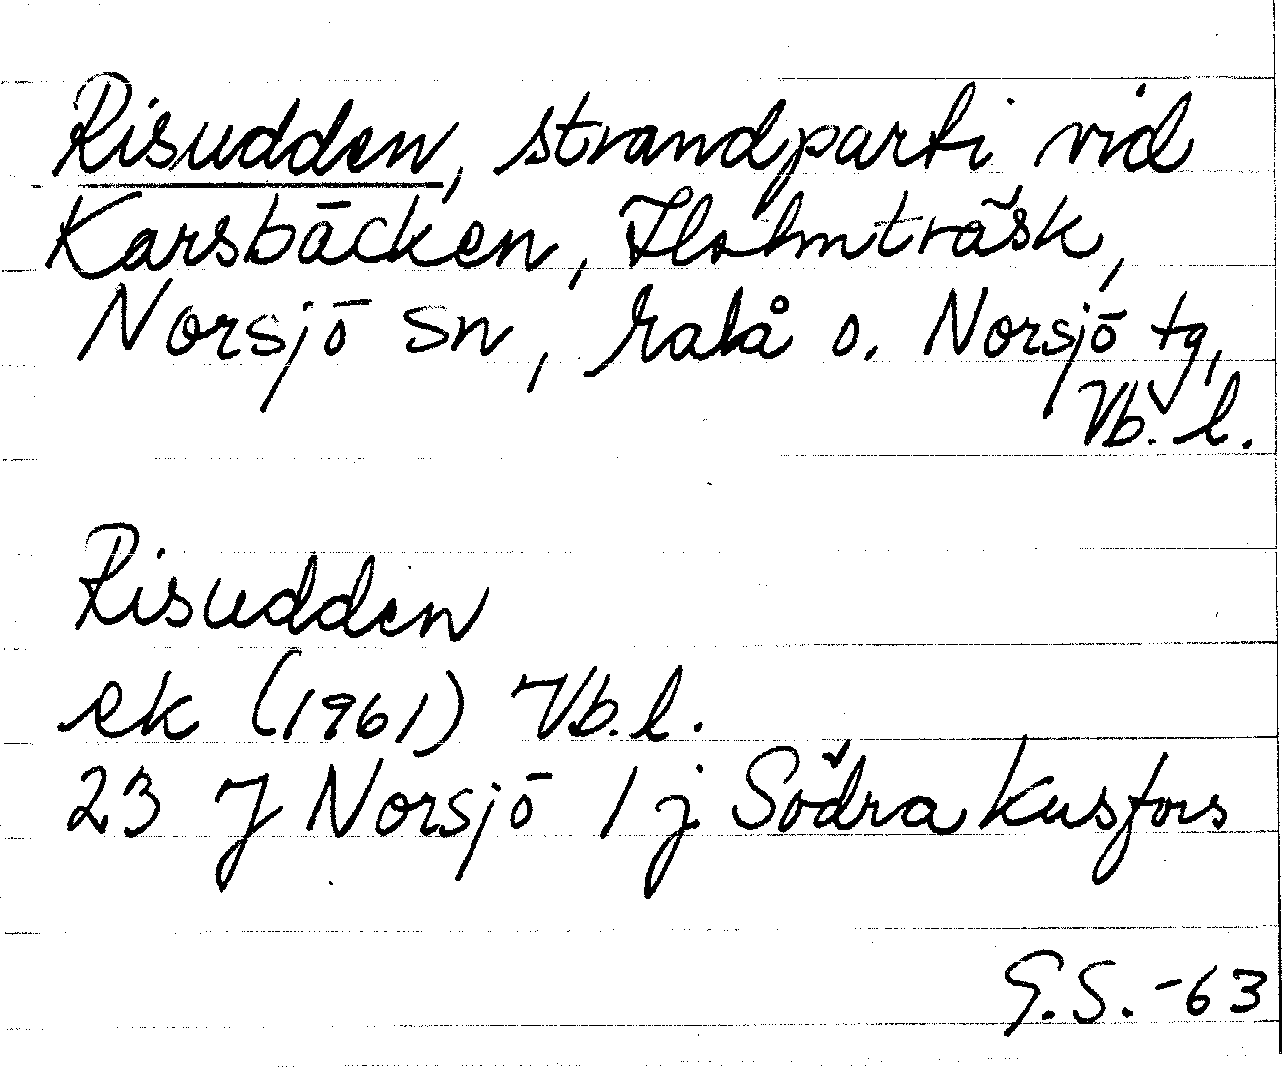 Risudden, strandparti vid
Karsbäcken, Holmträsk,
Norsjö sn, Malå o. Norsjö tg,
Vb. l.
Risudden
ek (1961) Vb. l.
23 J Norsjö 1 j Södra Kusfors
G.S. -63